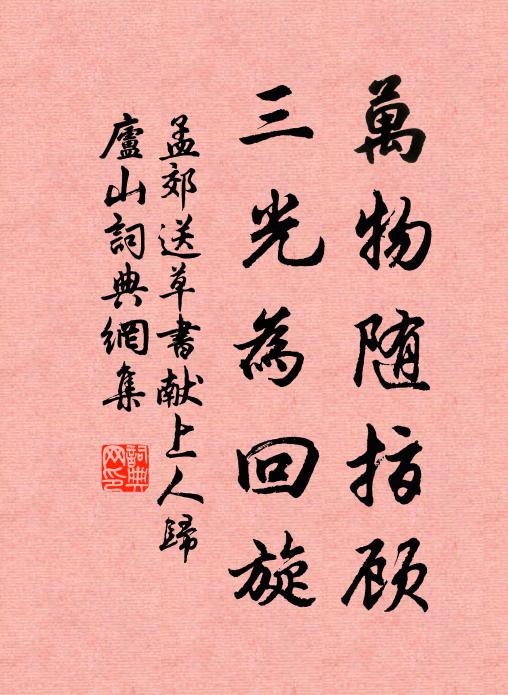 萬物随指顾
三光為回旋
孟郊送草書献上人歸
廬山詞典網集
詞典网印